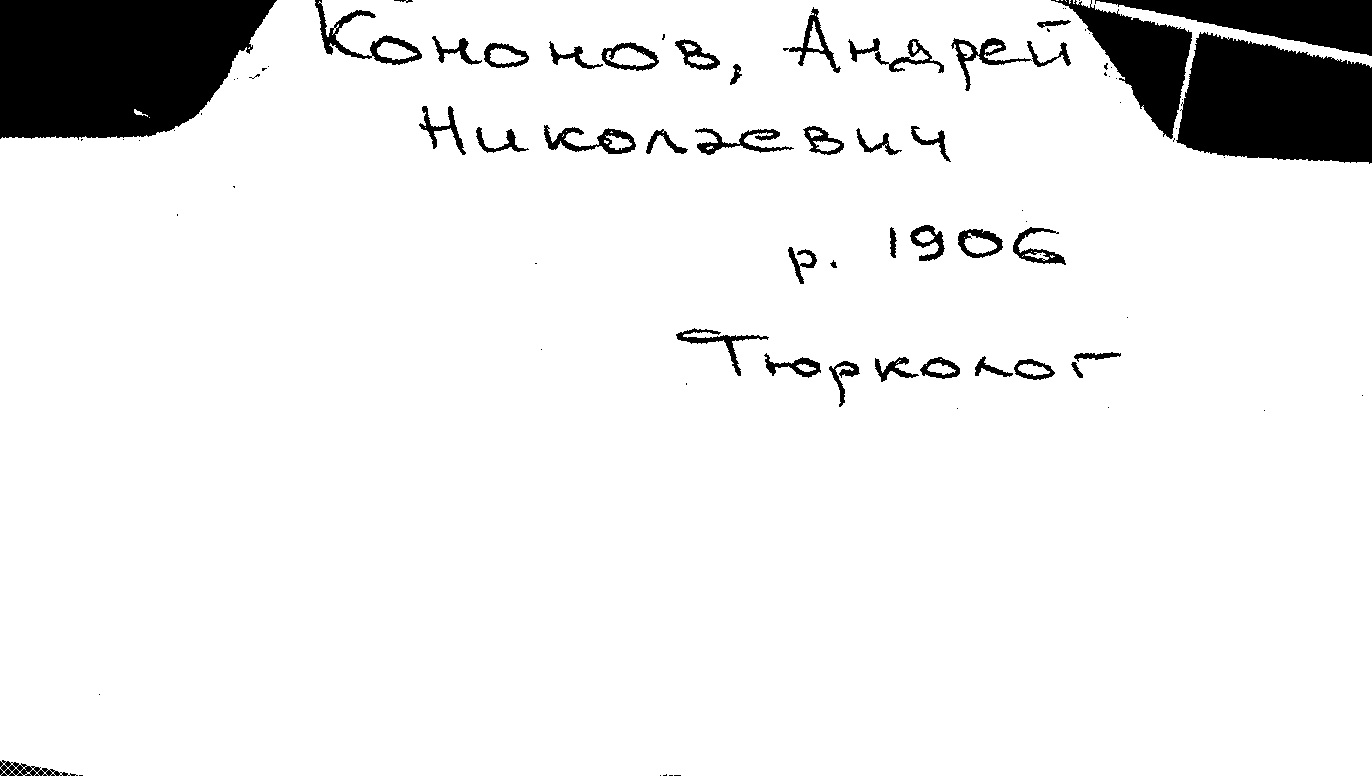 Кононов, Андрей
Николаевич
р. 1906
Тюрколог